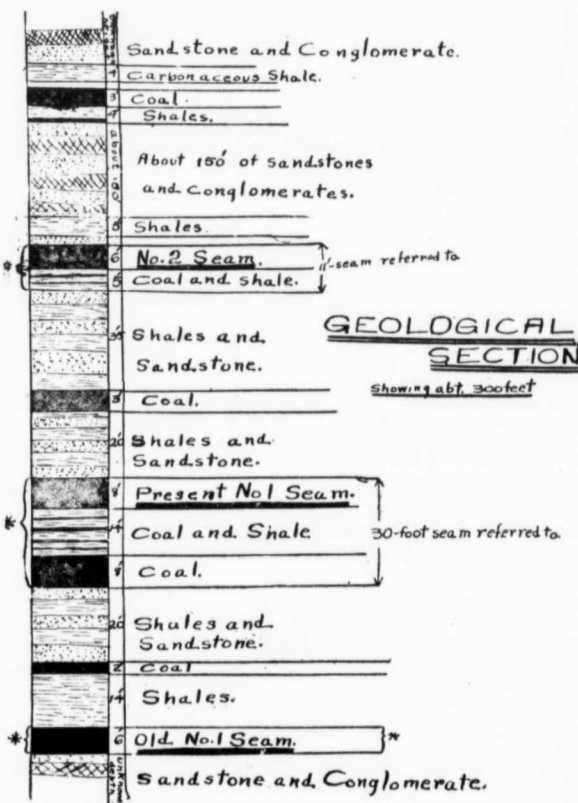 Sandstone and Conglomerate.
4' Carbonaceous Shale.
3' Coal.
4' Shales.
about
About 150' of Sandstones
and Conglomerates.
5' Shales
* 6' No.2 Seam.
11'-seam referred to
5' Coal and shale.
GEOLOGICAL
SECTION
Showing abt. 300feet
35' Shales and
Sandstone.
Coal.
20' Shales and
Sandstone.
* 8' Present No1 Seam.
14' Coal and Shale
30-foot seam referred to.
8' Coal.
20' Shules and
Sandstone.
2' Coal
14' Shales.
* 6' Old No.1 Seam. *
unknown
Sandstone and Conglomerate.